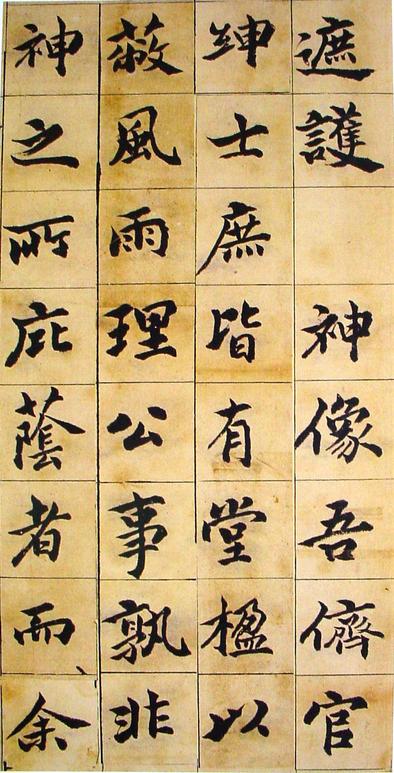 遮護　神像吾儕官
紳士庶皆有堂楹以
蔽風雨理公事孰非
神之所庇蔭者而余